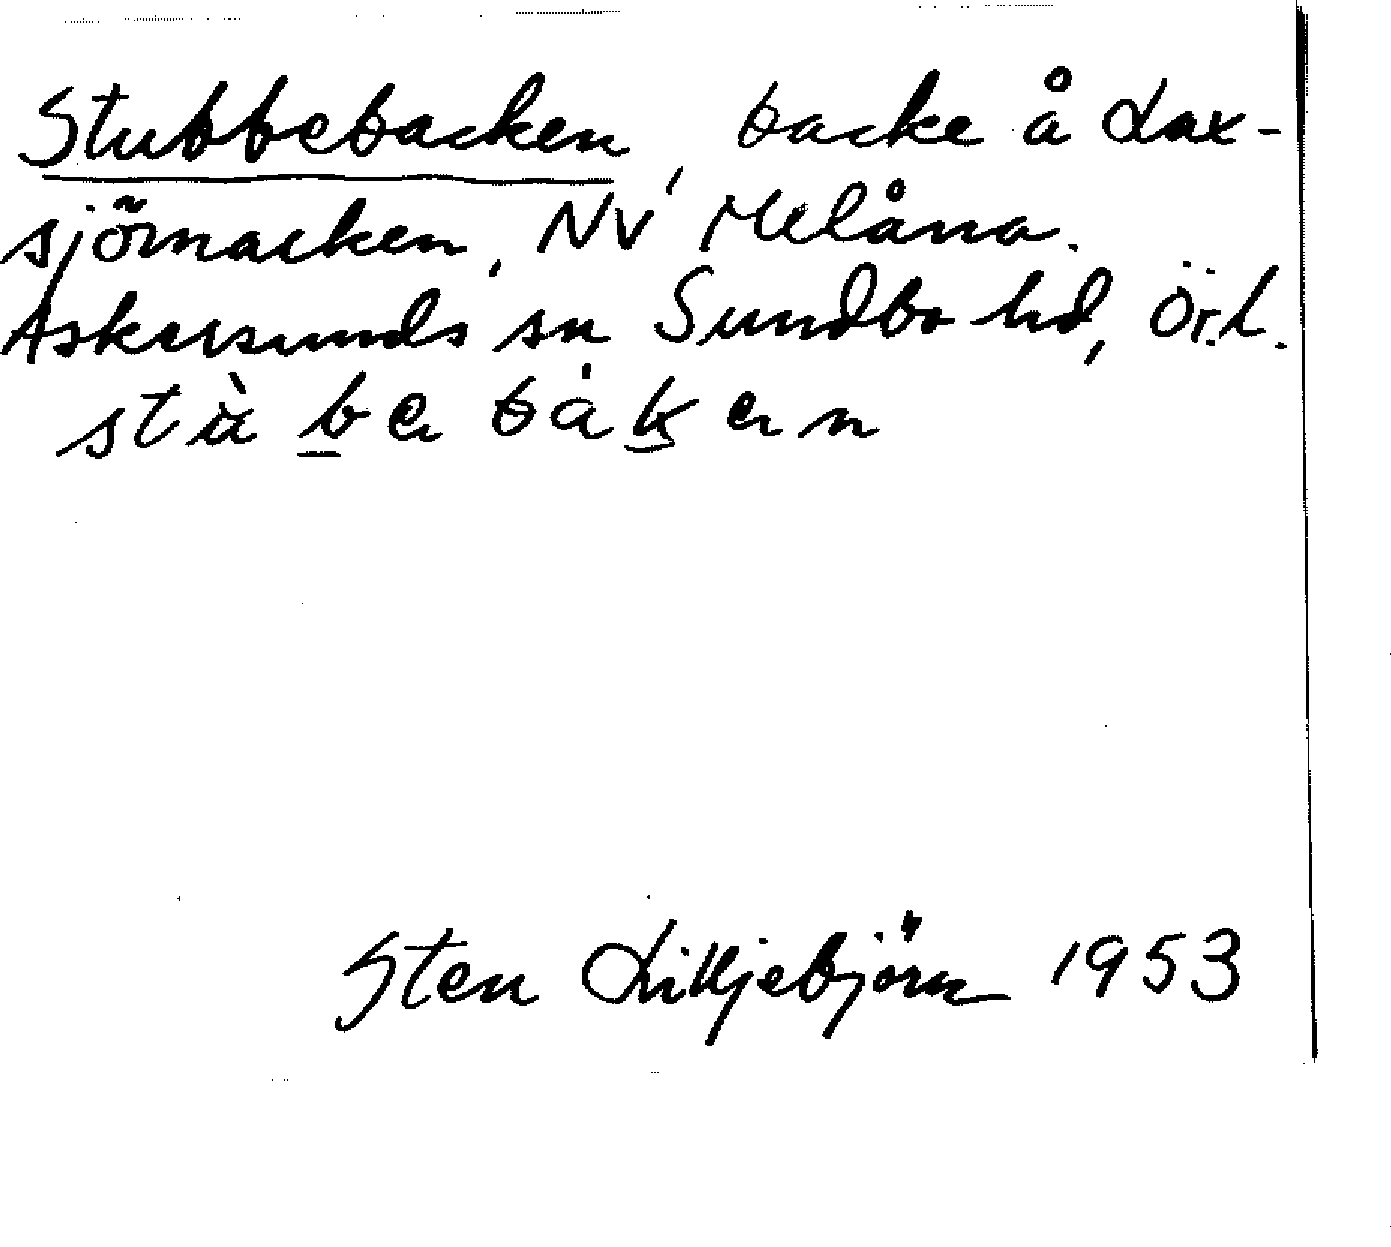 Stubbebacken, backe å Lax-
sjömacken, NV Melåna.
Askersunds sn Sundbo hd, Ör.l.
Sten Liljebjörn 1953